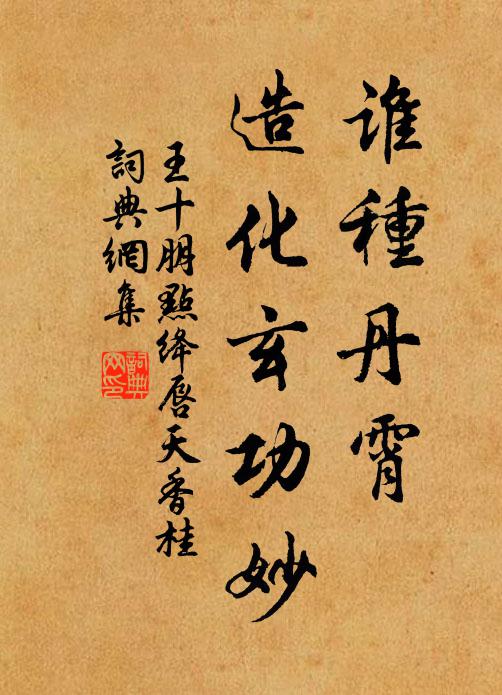 谁種丹霄
造化玄功妙
王十朋點絳唇天香桂
詞典網集
詞典
网印